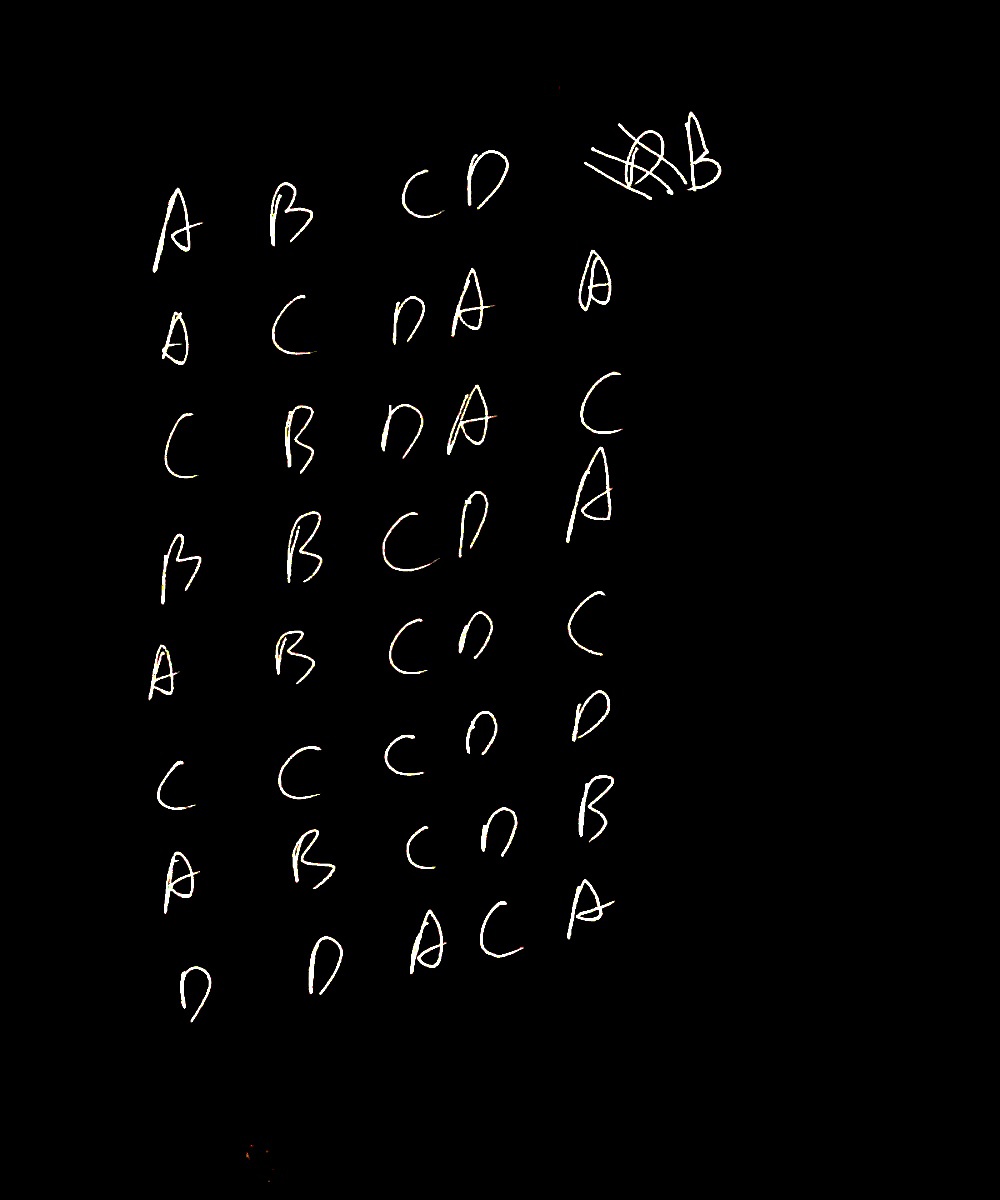 A B C D B
A C D A A
C B D A C
B B C D A
A B C D C
C C C D D
A B C D B
D D A C A